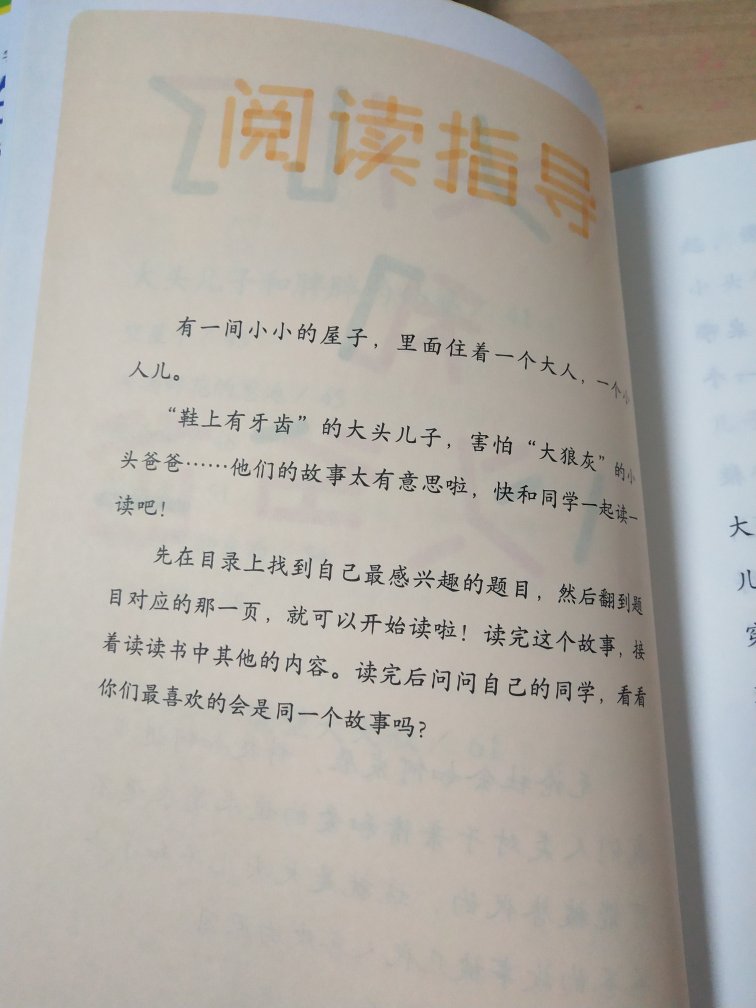 阅读指导
有一间小小的屋子，里面住着一个大人，一个小
人儿。
“鞋上有牙齿”的大头儿子，害怕“大狼灰”的小
头爸爸……他们的故事太有意思啦，快和同学一起读一
读吧！
先在目录上找到自己最感兴趣的题目，然后翻到题
目对应的那一页，就可以开始读啦！读完这个故事，接
着读读书中其他的内容。读完后问问自己的同学，看看
你们最喜欢的会是同一个故事吗？
大
儿